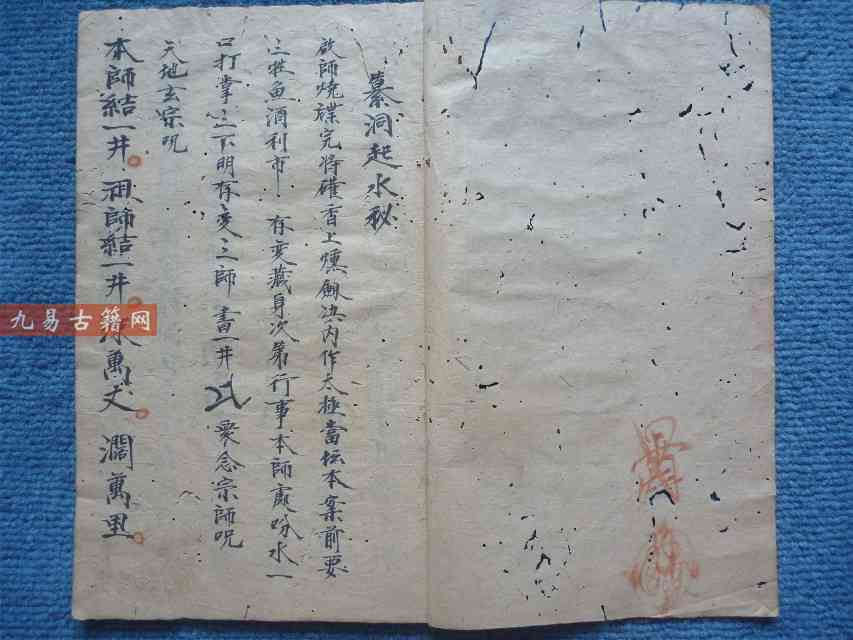 洞起水秘
啟師燒牒完將碓香上燻 內作太極當坛本案前要
三牲魚酒利市 存变藏身次第行事本師處吩水一
口打掌三下明存变三師 畫一井 衆念宗師呪
天地玄宗呪
本師結一井。祖師結一井。 萬丈。濶萬里。
九易古籍网